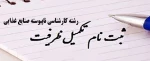 رشته کارشناسی ناپیوسته صنایع غذایی
ثبت نام تکمیل ظرفیت